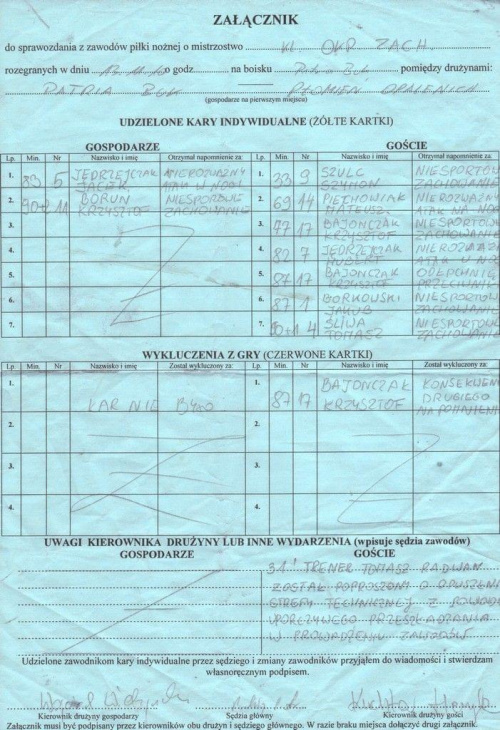 ZAŁĄCZNIK
do sprawozdania z zawodów piłki nożnej o mistrzostwo KL OKR ZACH.
rozegranych w dniu o godz na boisku pomiędzy drużynami:
PATRIA BUK PŁOMIEŃ OPALENICA
(gospodarze na pierwszym miejscu)
UDZIELONE KARY INDYWIDUALNE (ŻÓŁTE KARTKI)
GOSPODARZE GOŚCIE
Lp. Min. Nr Nazwisko i imię Otrzymał napomnienie za: Lp. Min. Nr Nazwisko i imię Otrzymał napomnienie za:
1. 83 5 JĘDRZEJCZAK JACEK NIEROZWAŻNY ATAK W NOGI 1. 33 9 SZULC SZYMON NIESPORTOW ZACHOWANIE
2. 90+2 11 BORUŃ KRZYSZTOF NIESPORTOWE ZACHOWANIE 2. 69 14 NIEROZWAŻN ATAK W NOGI
3. 3. 77 17 BAJOŃCZAK KRZYSZTOF NIESPORTOW ZACHOWANIE
4. 4. 82 7 JĘDRZEJCZAK HUBERT NIEROZWAŻ ATAK W NOG
5. 5. 87 17 BAJOŃCZAK KRZYSZTOF ODEPCHNIĘ PRZECIWNIK
6. 6. 87 1 BORKOWSKI JAKUB NIESPORTOW ZACHOWANIE
7. 7. 90+1 4 ŚLIWA TOMASZ NIESPORTOW ZACHOWANIE
WYKLUCZENIA Z GRY (CZERWONE KARTKI)
Lp. Min. Nr Nazwisko i imię Został wykluczony za: Lp. Min. Nr Nazwisko i imię Został wykluczony za:
1. KAR NIE BYŁO 1. 87 17 BAJOŃCZAK KRZYSZTOF KONSEKWEN DRUGIEGO NAPOMNIENI
2. 2.
3. 3.
4. 4.
UWAGI KIEROWNIKA DRUŻYNY LUB INNE WYDARZENIA (wpisuje sędzia zawodów)
GOSPODARZE GOŚCIE
31' TRENER TOMASZ RADWAN
ZOSTAŁ POPROSZONY O OPUSZCZENI
STREFY TECHNICZNEJ Z POWODU
UPORCZYWEGO PRZESZKADZANIA
W PROWADZENIU ZAWODÓW
Udzielone zawodnikom kary indywidualne przez sędziego i zmiany zawodników przyjąłem do wiadomości i stwierdzam
własnoręcznym podpisem.
Kierownik drużyny gospodarzy Sędzia główny Kierownik drużyny gości
Załącznik musi być podpisany przez kierowników obu drużyn i sędziego głównego. W razie braku miejsca dołączyć drugi załącznik.